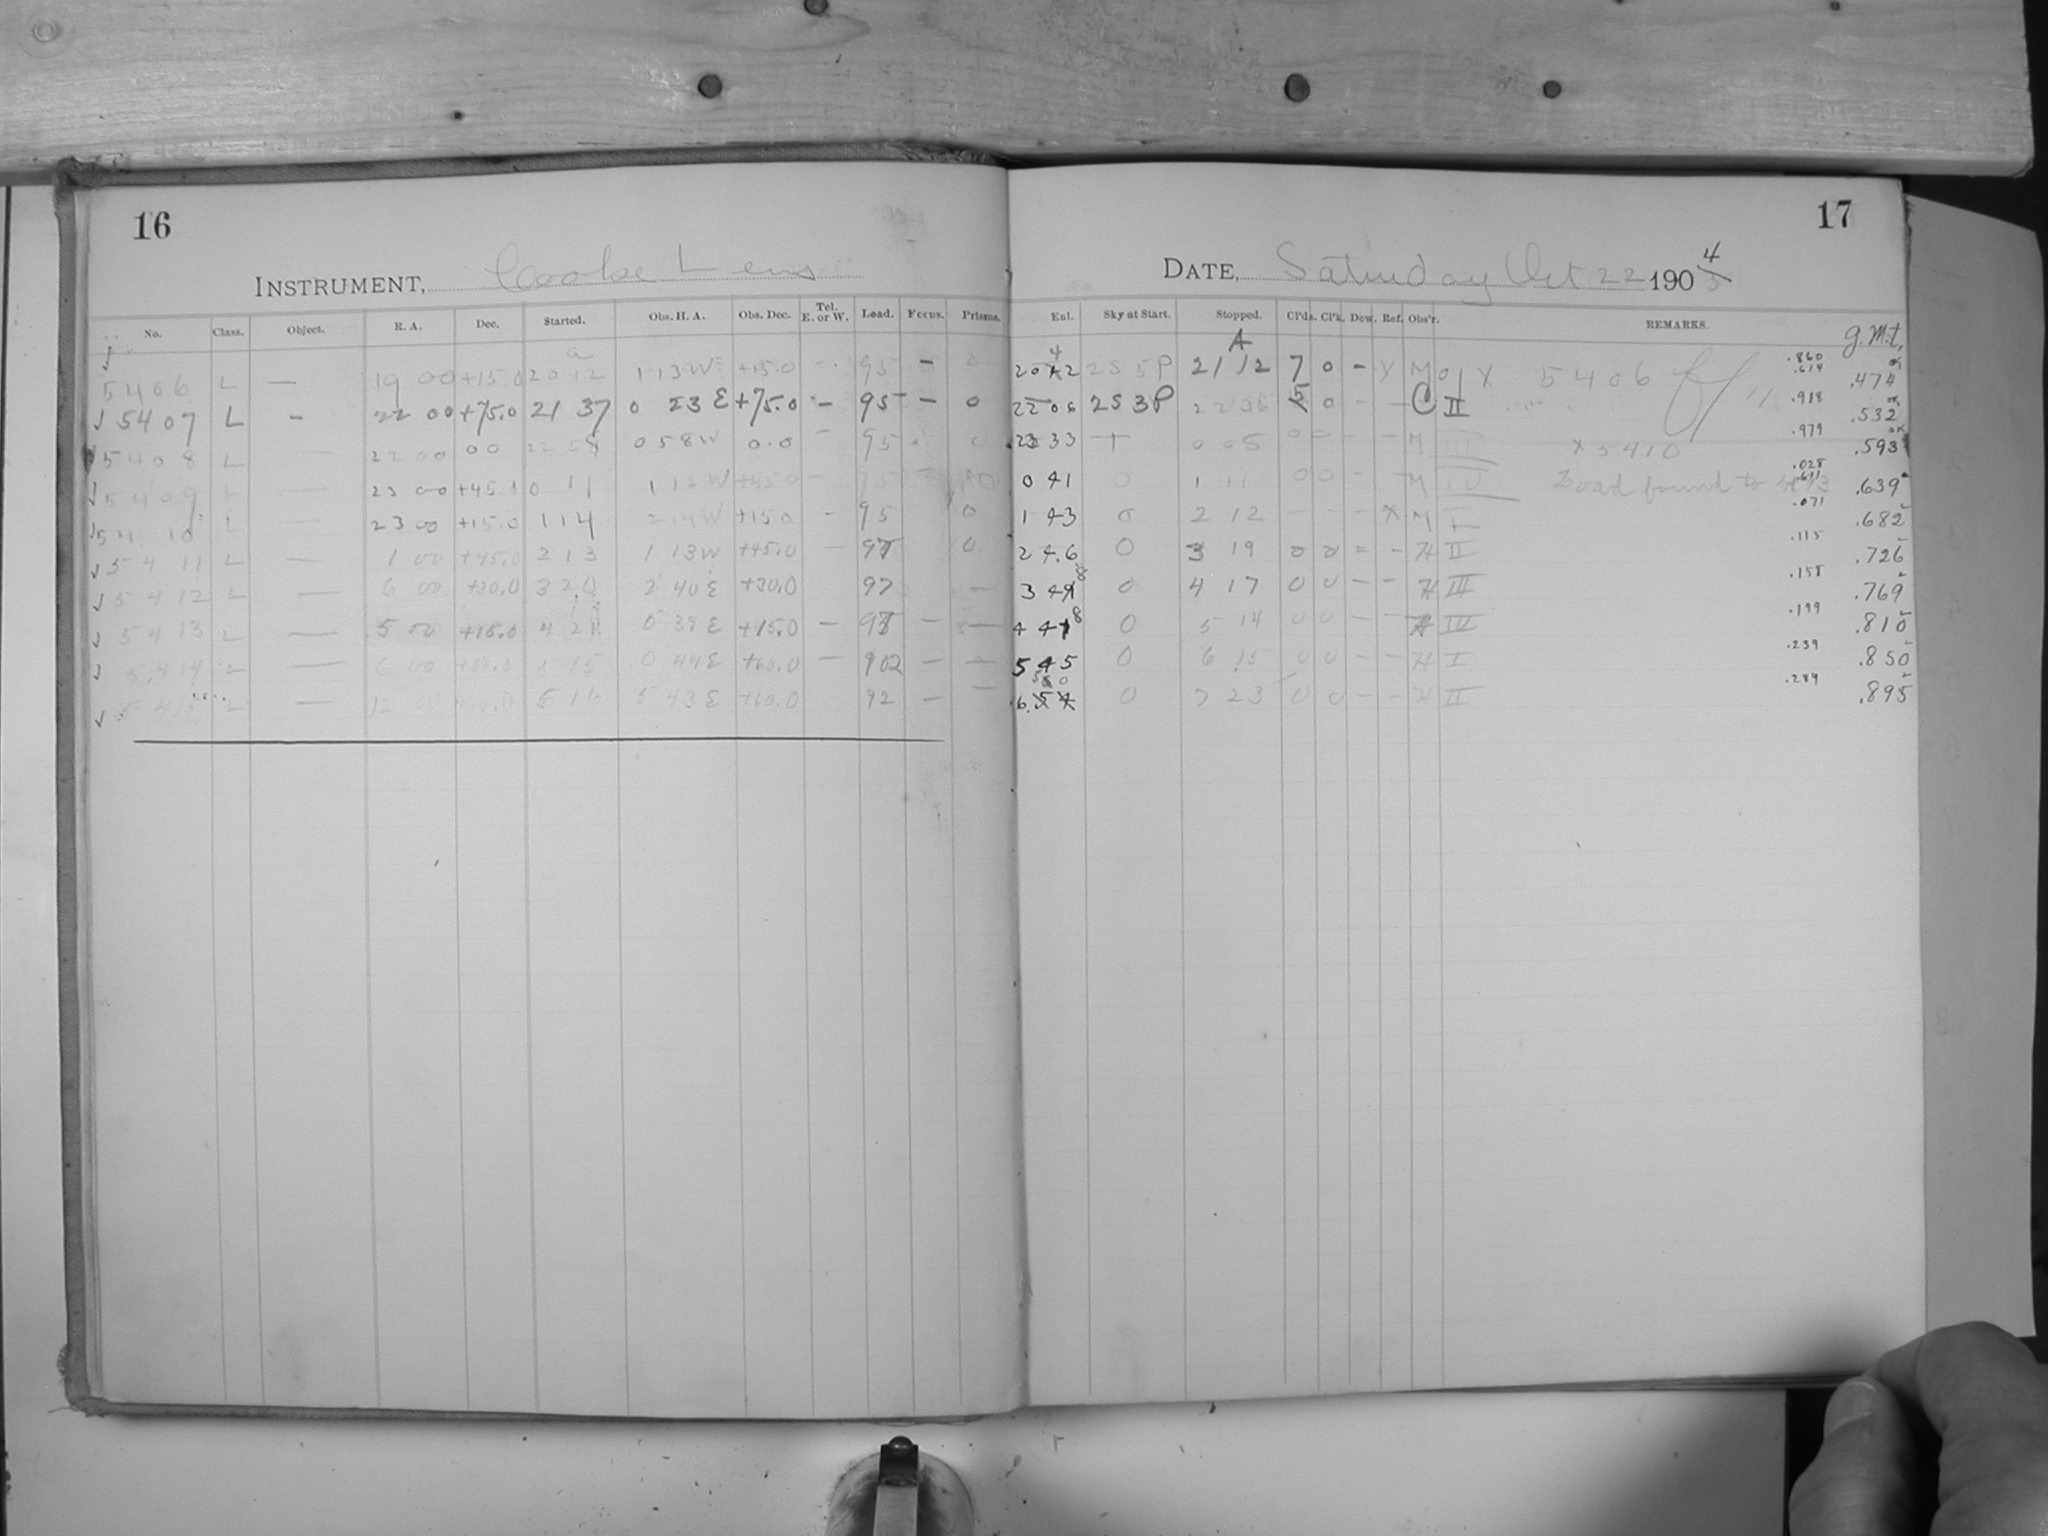 16
17
INSTRUMENT, Cooke Lens
DATE, Saturday Oct 22 1904
No. Class. Object. R. A. Dec. Started. Obs. H. A. Obs. Dec. Tel. E. or W. Lead. Focus. Prisms. Ent. Sky at Start. Stopped. Cl'ds. Cl'k. Dew. Ref. Obs'r. REMARKS. G.M.T.
5406 L — 19 00 +15.0 20 12 1 13 W +15.0 - 95 - 0 20 42 255P 21 12 7 0 - Y M I X 5406 .860 .614 .474
5407 L - 22 00 +75.0 21 37 0 23 E +75.0 - 95 - 0 22 06 253P 22 36 5 0 - - C II .918 .532
5408 L — 22 00 00 22 58 0 58 W 0.0 - 95 0 23 33 + 0 08 0 0 - - M III X 5410 .979 .593
5409 L — 23 00 +45.0 0 11 1 12 W +45.0 - 95 0 0 41 0 1 11 0 0 - - M IV Load found to be 93 .028 .639
5410 L — 23 00 +15.0 1 14 2 14 W +15.0 - 95 0 1 43 0 2 12 - - - X M I .071 .682
5411 L — 1 00 +45.0 2 13 1 13 W +45.0 — 97 0 2 46 0 3 19 0 0 - - H II .115 .726
5412 L — 6 00 +30.0 3 20 2 40 E +30.0 97 — 3 48 0 4 17 0 0 - - H III .158 .769
5413 L — 5 00 +15.0 4 21 0 39 E +15.0 - 97 - — 4 48 0 5 14 0 0 - - H IV .199 .810
5414 L — 6 00 +60.0 5 15 0 44 E +60.0 - 102 - - 5 45 0 6 15 0 0 - - H I .239 .850
5415 L — 12 00 +60.0 6 16 5 43 E +60.0 92 - — 6 50 0 7 23 0 0 - - H II .284 .895